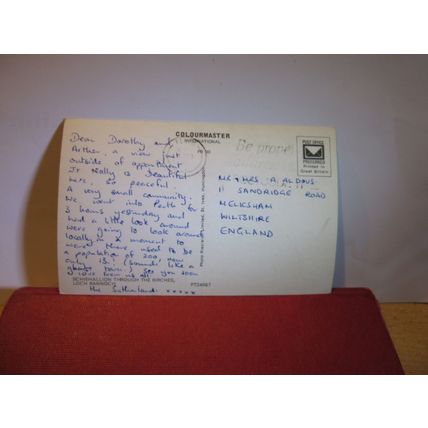 Dear Dorothy and
Arthur, a view just
outside of appartment
It really is beautiful
here, so peaceful.
A very small community.
We went into Perth for
3 hours yesterday and
had a little look around
were going to look around
locally in a moment to
were there used to be
a population of 200, now
only 13! (sounds like a
ghost town.) See you soon
love from us all
The Sutherlands xxxxx
SCHIEHALLION THROUGH THE BIRCHES,
LOCH RANNOCH
PT34087
COLOURMASTER
INTERNATIONAL
Be prope
POST OFFICE
PREFERRED
Printed in
Great Britain
MR & MRS A. ALDOUS
11 SANDRIDGE ROAD
MELKSHAM
WILTSHIRE
ENGLAND